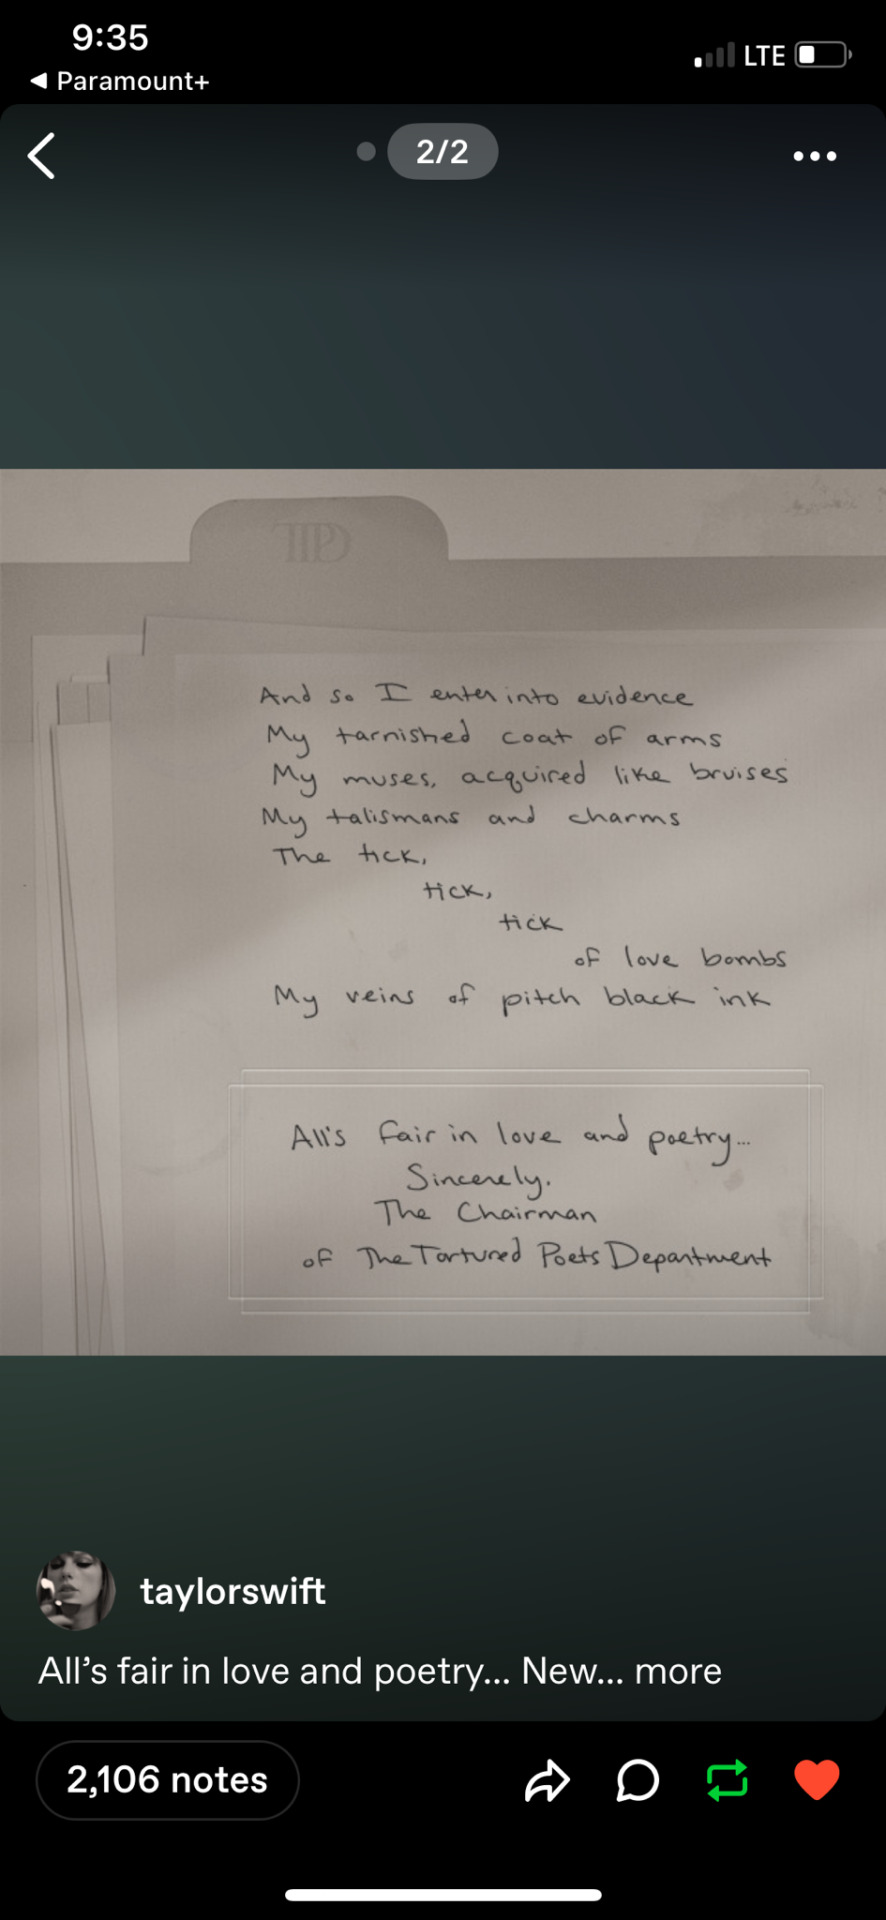 9:35
LTE
◀ Paramount+
2/2
And so I enter into evidence
My tarnished coat of arms
My muses, acquired like bruises
My talismans and charms
The tick,
tick,
tick
of love bombs
My veins of pitch black ink
All's fair in love and poetry...
Sincerely,
The Chairman
of The Tortured Poets Department
taylorswift
All’s fair in love and poetry... New... more
2,106 notes